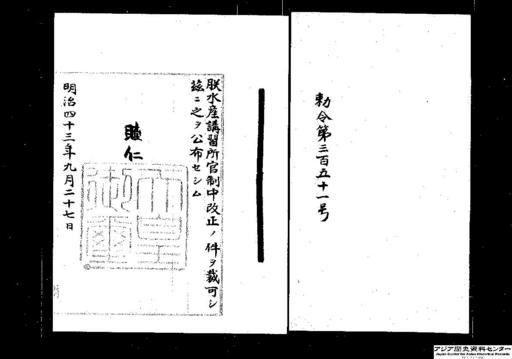 勅令第三百五十一号
朕水産講習所官制中改正ノ件ヲ裁可シ
茲ニ之ヲ公布セシム
睦仁
天皇御璽
明治四十三年九月二十七日
アジア歴史資料センター
Japan Center for Asian Historical Records